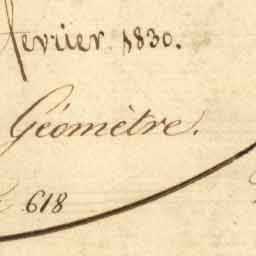 fevrier 1830.
Géomètre.
618